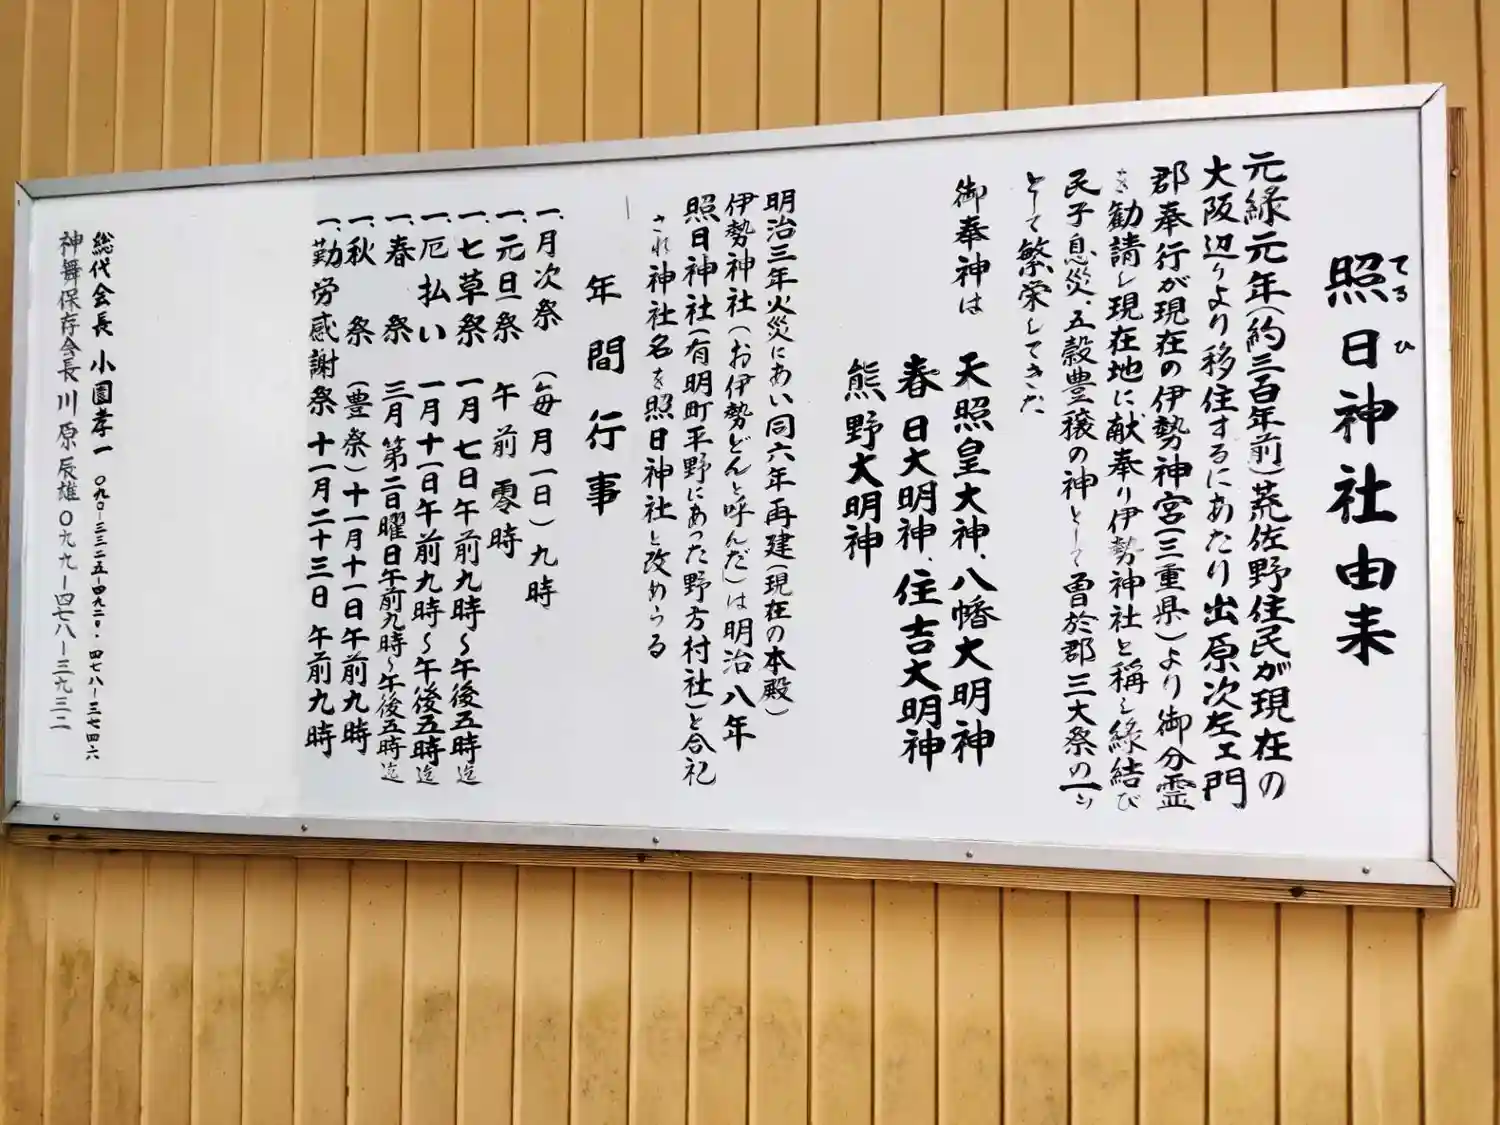 照日神社由来
てるひ
元緑元年(約三百年前)荒佐野住民が現在の
大阪辺りより移住するにあたり出原次左ェ門
郡奉行が現在の伊勢神宮(三重県)より御分霊
を勧請し現在地に献奉り伊勢神社と稱し緑結び
民子息災、五穀豊穣の神として曽於郡三大祭の一つ
として繁栄してきた
御奉神は 天照皇大神、八幡大明神
春日大明神、住吉大明神
熊野大明神
明治三年火災にあい同六年再建(現在の本殿)
伊勢神社(お伊勢どんと呼んだ)は明治八年
照日神社(有明町平野にあった野方村社)と合祀
され神社名を照日神社と改めらる
年間行事
一、月次祭 (毎月一日)九時
一、元旦祭 午前零時
一、七草祭 一月七日午前九時～午後五時迄
一、厄払い 一月十一日午前九時～午後五時迄
一、春祭 三月第二日曜日午前九時～午後五時迄
一、秋祭 (豊祭)十一月十一日午前九時
一、勤労感謝祭 十一月二十三日 午前九時
総代会長 小園孝一 〇九〇-三三二五-四九二〇・四七八-三七四六
神舞保存会長 川原辰雄 〇九九-四七八-三九三二